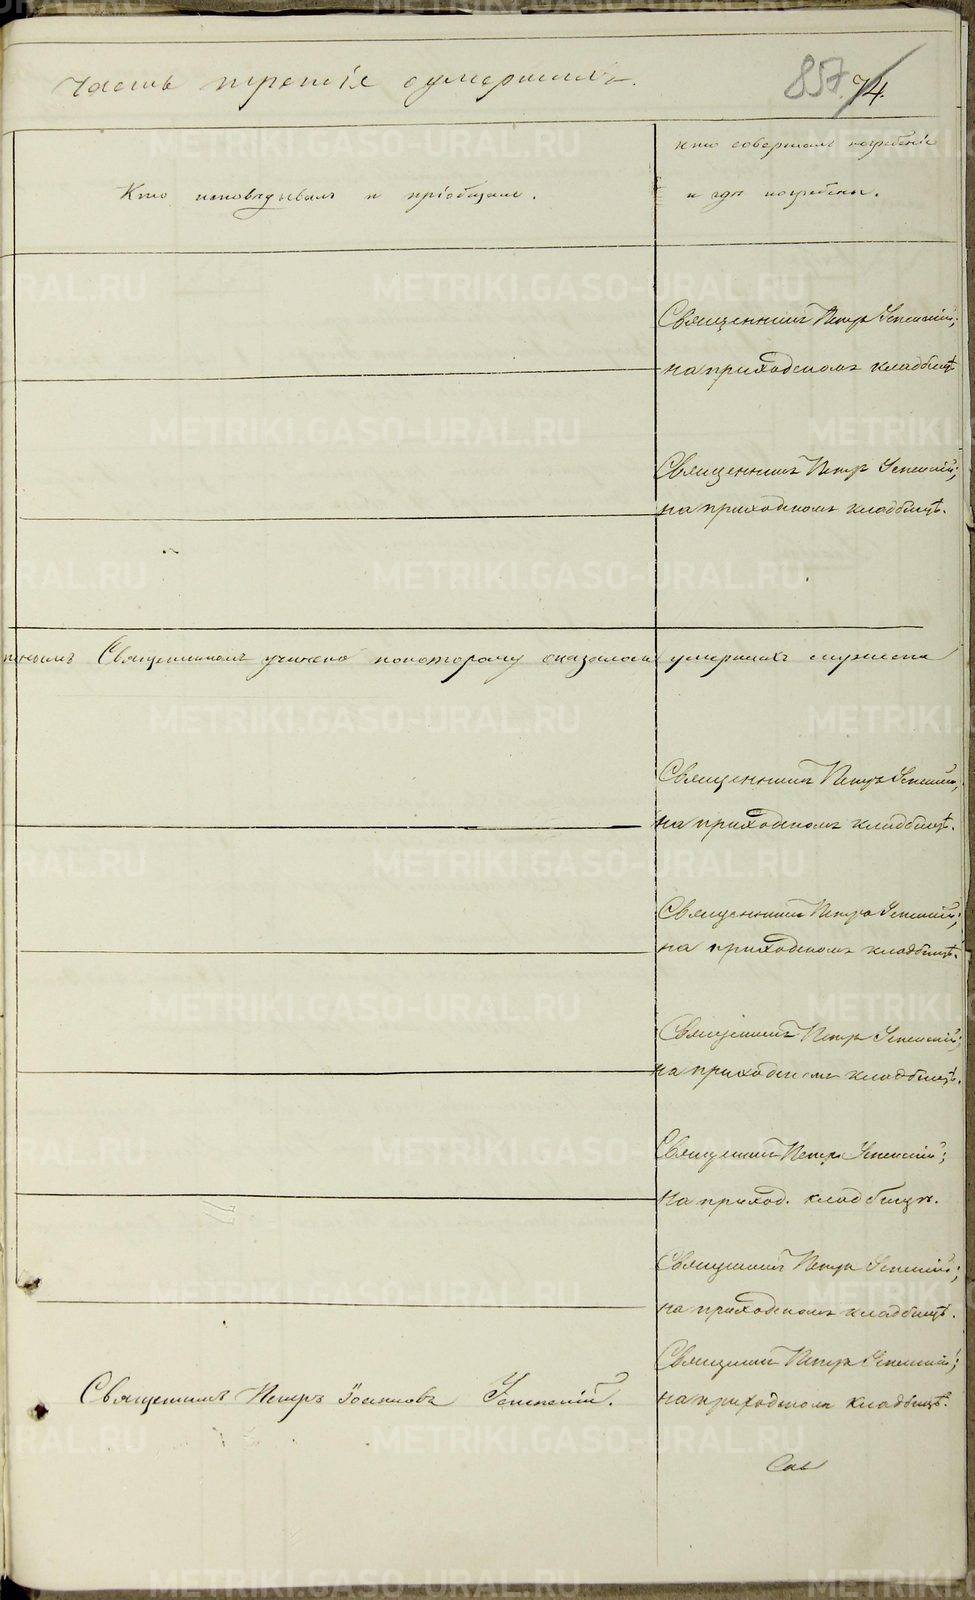 Часть третія оумершихъ.
857. 74.
Кто исповѣдывалъ и пріобщалъ.
кто совершалъ погребеніе
и гдѣ погребены.
Священникъ Петръ Успенскій;
на приходскомъ кладбищѣ
Священникъ Петръ Успенскій;
на приходскомъ кладбищѣ.
Священникомъ учинено покоторому оказалось умершихъ мужеска
Священникъ Петръ Успенскій;
на приходскомъ кладбищѣ.
Священникъ Петръ Успенскій;
на приходскомъ кладбищѣ.
Священникъ Петръ Успенскій;
на приходскомъ кладбищѣ.
Священникъ Петръ Успенскій;
на приход. кладбищѣ.
Священникъ Петръ Успенскій;
на приходскомъ кладбищѣ.
Священникъ Петръ Успенскій;
Священникъ Петръ Іоанновъ Успенскій.
на приходскомъ кладбищѣ.
METRIKI.GASO-URAL.RU